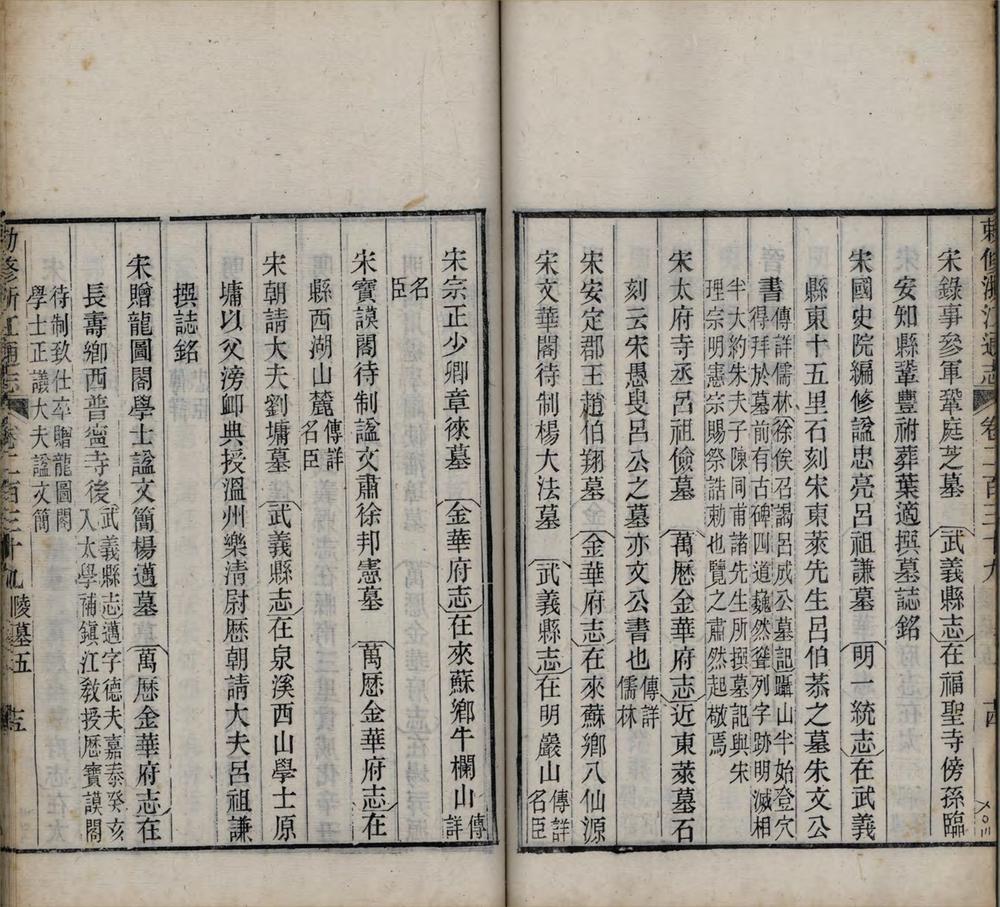 敕修浙江通志 卷二百三十九 十四
宋錄事參軍鞏庭芝墓 武義縣志在福聖寺傍孫臨
安知縣鞏豐祔葬葉適撰墓誌銘
宋國史院編修諡忠亮呂祖謙墓 明一統志在武義
縣東十五里石刻宋東萊先生呂伯恭之墓朱文公
書 傳詳儒林徐俟召謁呂成公墓記躡山半始登穴
得拜於墓前有古碑四道巍然聳列字跡明滅相
半大約朱夫子陳同甫諸先生所撰墓記與宋
理宗明憲宗賜祭誥勅也覽之肅然起敬焉
宋太府寺丞呂祖儉墓 萬厯金華府志近東萊墓石
刻云宋愚叟呂公之墓亦文公書也 傳詳
儒林
宋安定郡王趙伯翔墓 金華府志在來蘇鄉八仙源
宋文華閣待制楊大法墓 武義縣志在明巖山 傳詳
名臣
宋宗正少卿章徠墓 金華府志在來蘇鄉牛欄山 傳詳
名
臣
宋寶謨閣待制諡文肅徐邦憲墓 萬厯金華府志在
縣西湖山麓 傳詳
名臣
宋朝請大夫劉墉墓 武義縣志在泉溪西山學士原
墉以父滂卹典授溫州樂清尉厯朝請大夫呂祖謙
撰誌銘
宋贈龍圖閣學士諡文簡楊邁墓 萬厯金華府志在
長壽鄉西普寧寺後 武義縣志邁字德夫嘉泰癸亥
入太學補鎮江敎授厯寶謨閣
待制致仕卒贈龍圖閣
學士正議大夫諡文簡
勅修浙江通志 卷二百三十九 陵墓五